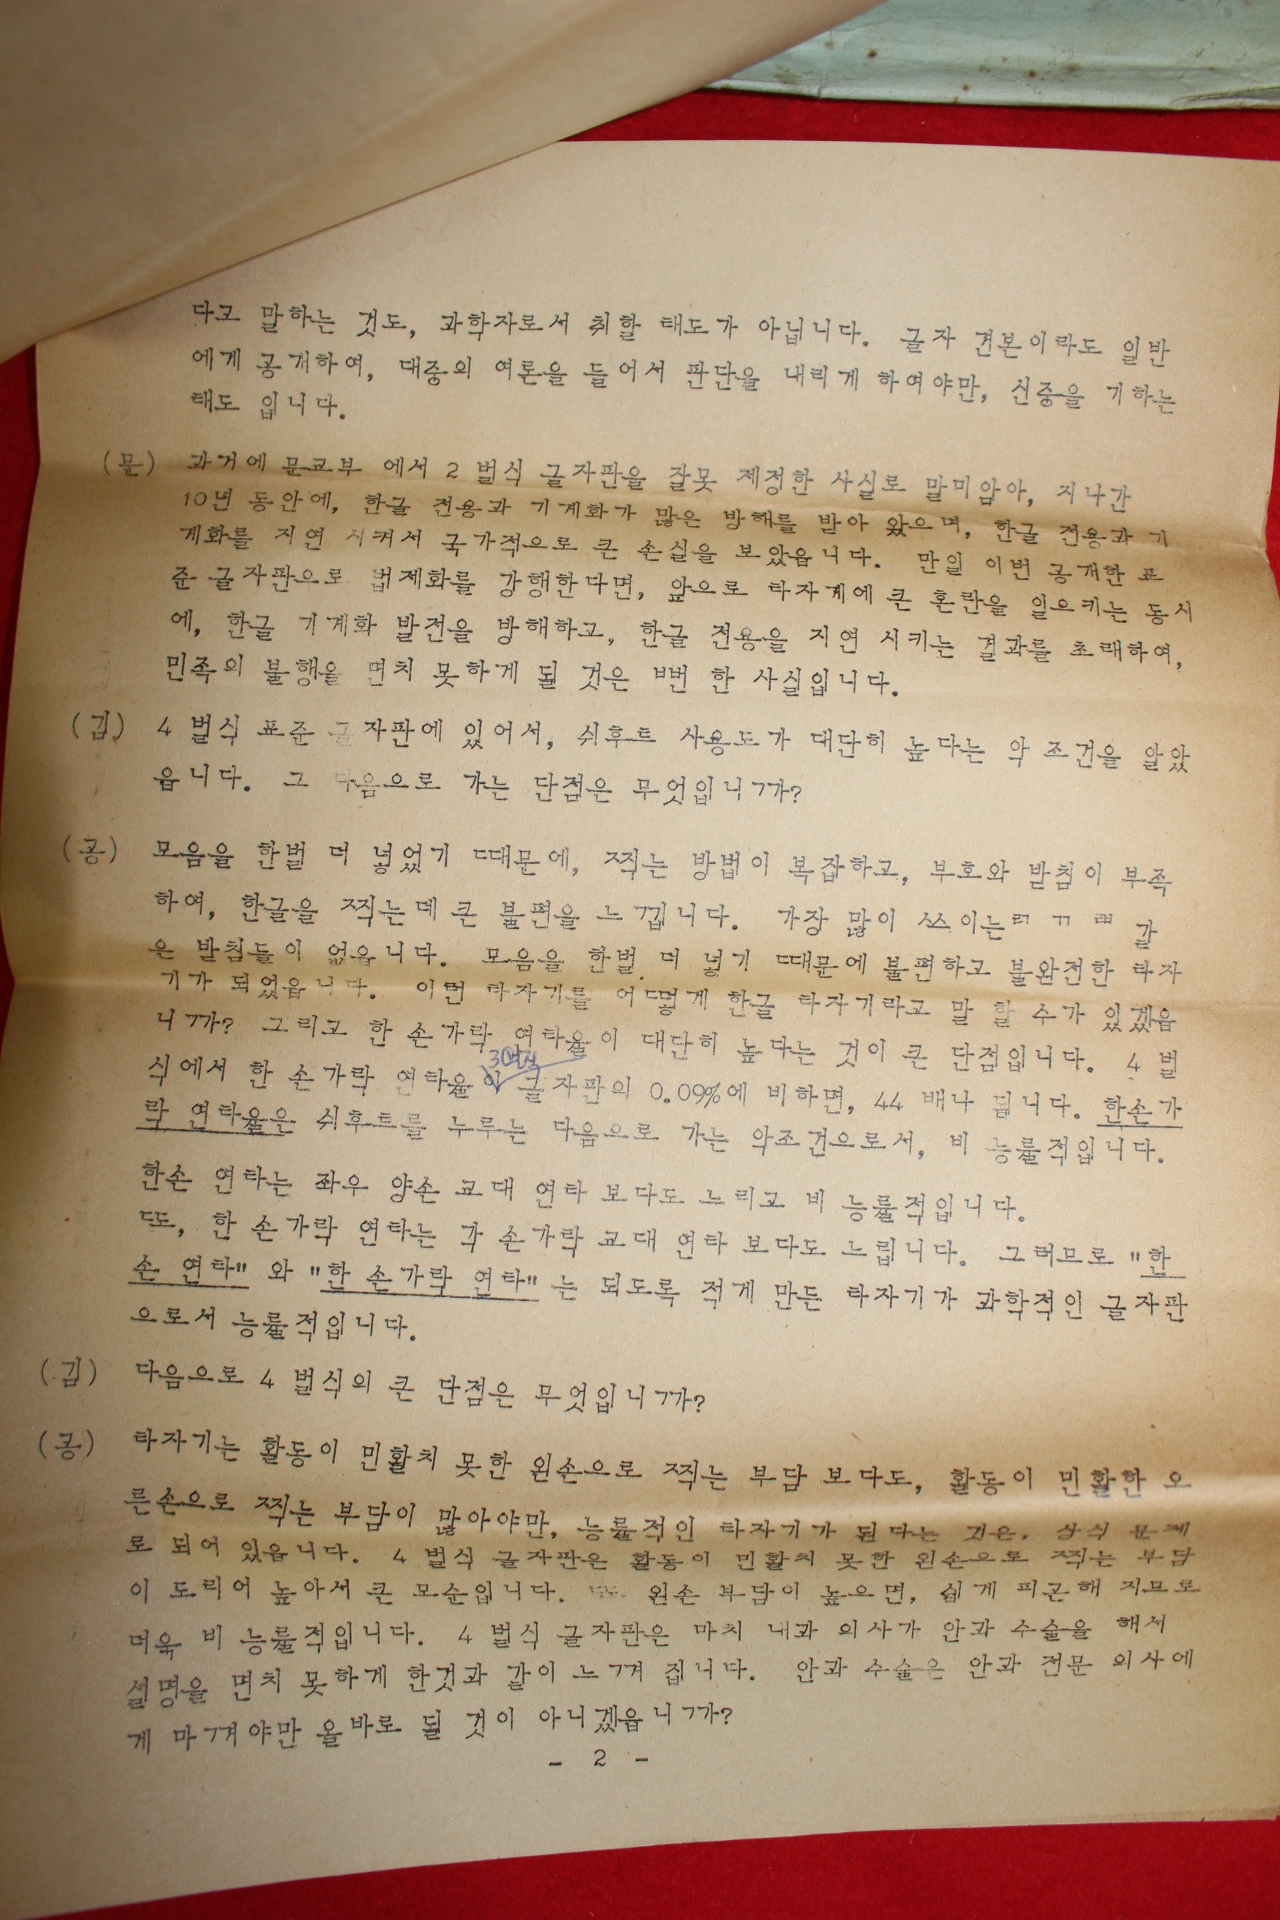 다고 말하는 것도, 과학자로서 취할 태도가 아닙니다. 글자 견본이라도 일반
에게 공개하여, 대중의 여론을 들어서 판단을 내리게 하여야만, 신중을 기하는
태도 입니다.
(문) 과거에 문교부 에서 2 벌식 글자판을 잘못 제정한 사실로 말미암아, 지나간
10년 동안에, 한글 전용과 기계화가 많은 방해를 받아 왔으며, 한글 전용과 기
계화를 지연 시켜서 국가적으로 큰 손실을 보았읍니다. 만일 이번 공개한 표
준 글자판으로 법제화를 강행한다면, 앞으로 타자계에 큰 혼란을 일으키는 동시
에, 한글 기계화 발전을 방해하고, 한글 전용을 지연 시키는 결과를 초래하여,
민족의 불행을 면치 못하게 될 것은 뻔 한 사실입니다.
(김) 4 벌식 표준 글자판에 있어서, 쉬후트 사용도가 대단히 높다는 악 조건을 알았
읍니다. 그 다음으로 가는 단점은 무엇입니까?
(공) 모음을 한벌 더 넣었기 때문에, 찍는 방법이 복잡하고, 부호와 받침이 부족
하여, 한글을 찍는데 큰 불편을 느낍니다. 가장 많이 쓰이는 ㄲ 같
은 받침들이 없읍니다. 모음을 한벌 더 넣기 때문에 불편하고 불완전한 타자
기가 되었읍니다. 이런 타자기를 어떻게 한글 타자기라고 말 할 수가 있겠읍
니까? 그리고 한 손가락 연타율이 대단히 높다는 것이 큰 단점입니다. 4 벌
식에서 한 손가락 연타율이 글자판의 0.09%에 비하면, 44 배나 됩니다. 한손가
락 연타율은 쉬후트를 누루는 다음으로 가는 악조건으로서, 비 능률적입니다.
한손 연타는 좌우 양손 교대 연타 보다도 느리고 비 능률적입니다.
또, 한 손가락 연타는 각 손가락 교대 연타 보다도 느립니다. 그러므로 "한
손 연타" 와 "한 손가락 연타" 는 되도록 적게 만든 타자기가 과학적인 글자판
으로서 능률적입니다.
(김) 다음으로 4 벌식의 큰 단점은 무엇입니까?
(공) 타자기는 활동이 민활치 못한 왼손으로 찍는 부담 보다도, 활동이 민활한 오
른손으로 찍는 부담이 많아야만, 능률적인 타자기가 된다는 것은, 상식 문제
로 되어 있읍니다. 4 벌식 글자판은 활동이 민활치 못한 왼손으로 찍는 부담
이 도리어 높아서 큰 모순입니다. 또 왼손 부담이 높으면, 쉽게 피곤해 지므로
더욱 비 능률적입니다. 4 벌식 글자판은 마치 내과 의사가 안과 수술을 해서
실명을 면치 못하게 한것과 같이 느껴 집니다. 안과 수술은 안과 전문 의사에
게 마껴야만 올바로 될 것이 아니겠읍니까?
- 2 -